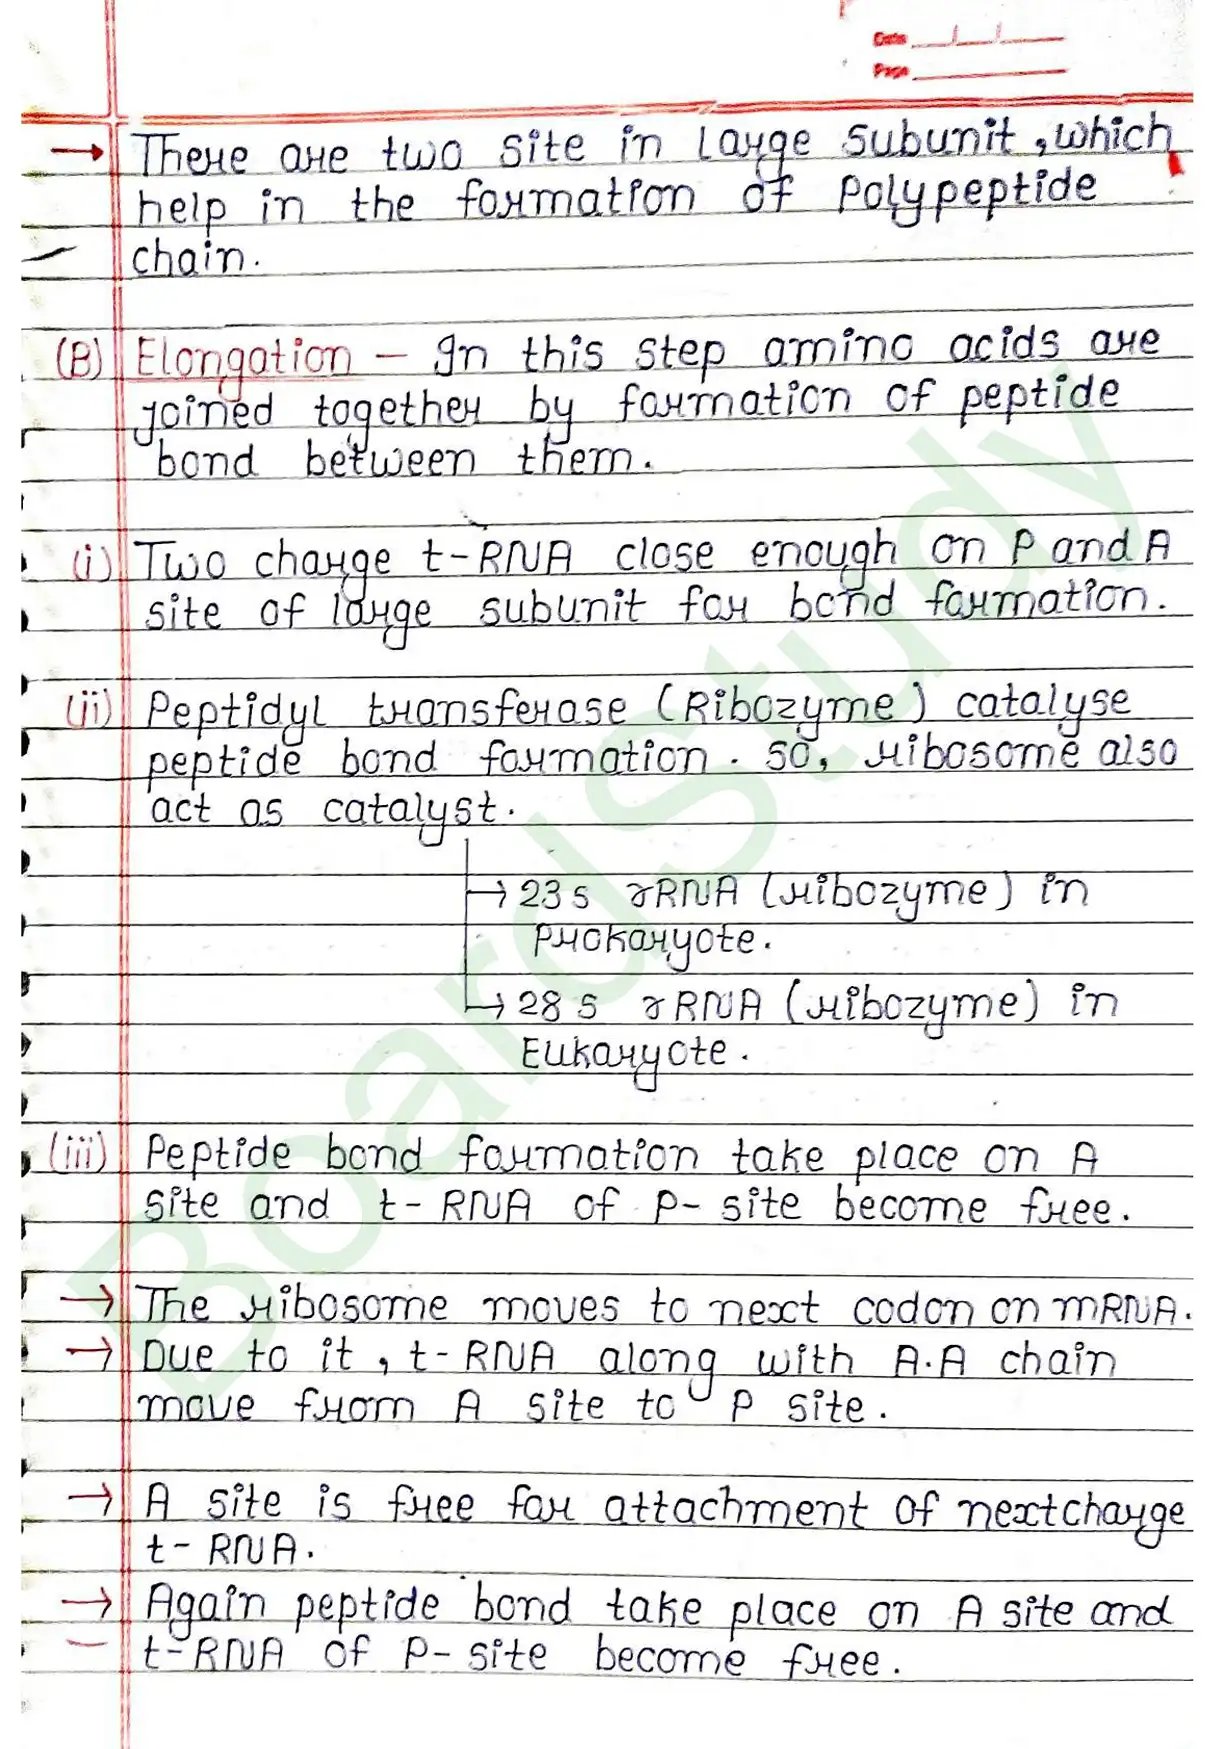 Date
Page
→ There are two site in large subunit, which
help in the formation of polypeptide
chain.
(B) Elongation – In this step amino acids are
joined together by formation of peptide
bond between them.
(i) Two charge t-RNA close enough on P and A
site of large subunit for bond formation.
(ii) Peptidyl transferase (Ribozyme) catalyse
peptide bond formation. so, ribosome also
act as catalyst.
→ 23 s rRNA (ribozyme) in
prokaryote.
→ 28 s rRNA (ribozyme) in
Eukaryote.
(iii) Peptide bond formation take place on A
site and t-RNA of P-site become free.
→ The ribosome moves to next codon on mRNA.
→ Due to it, t-RNA along with A.A chain
move from A site to P site.
→ A site is free for attachment of next charge
t-RNA.
→ Again peptide bond take place on A site and
t-RNA of P-site become free.
BoardStudy